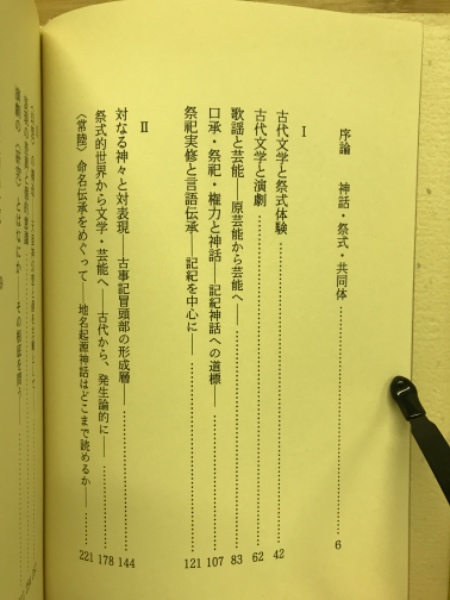 序論　神話・祭式・共同体……6
Ⅰ
古代文学と祭式体験……42
古代文学と演劇……62
歌謡と芸能――原芸能から芸能へ――……83
口承・祭祀・権力と神話――記紀神話への道標……107
祭祀実修と言語伝承――記紀を中心に――……121
Ⅱ
対なる神々と対表現――古事記冒頭部の形成層――……144
祭式的世界から文学・芸能へ――古代から、発生論的に――……178
〈常陸〉命名伝承をめぐって――地名起源神話はどこまで読めるか――……221